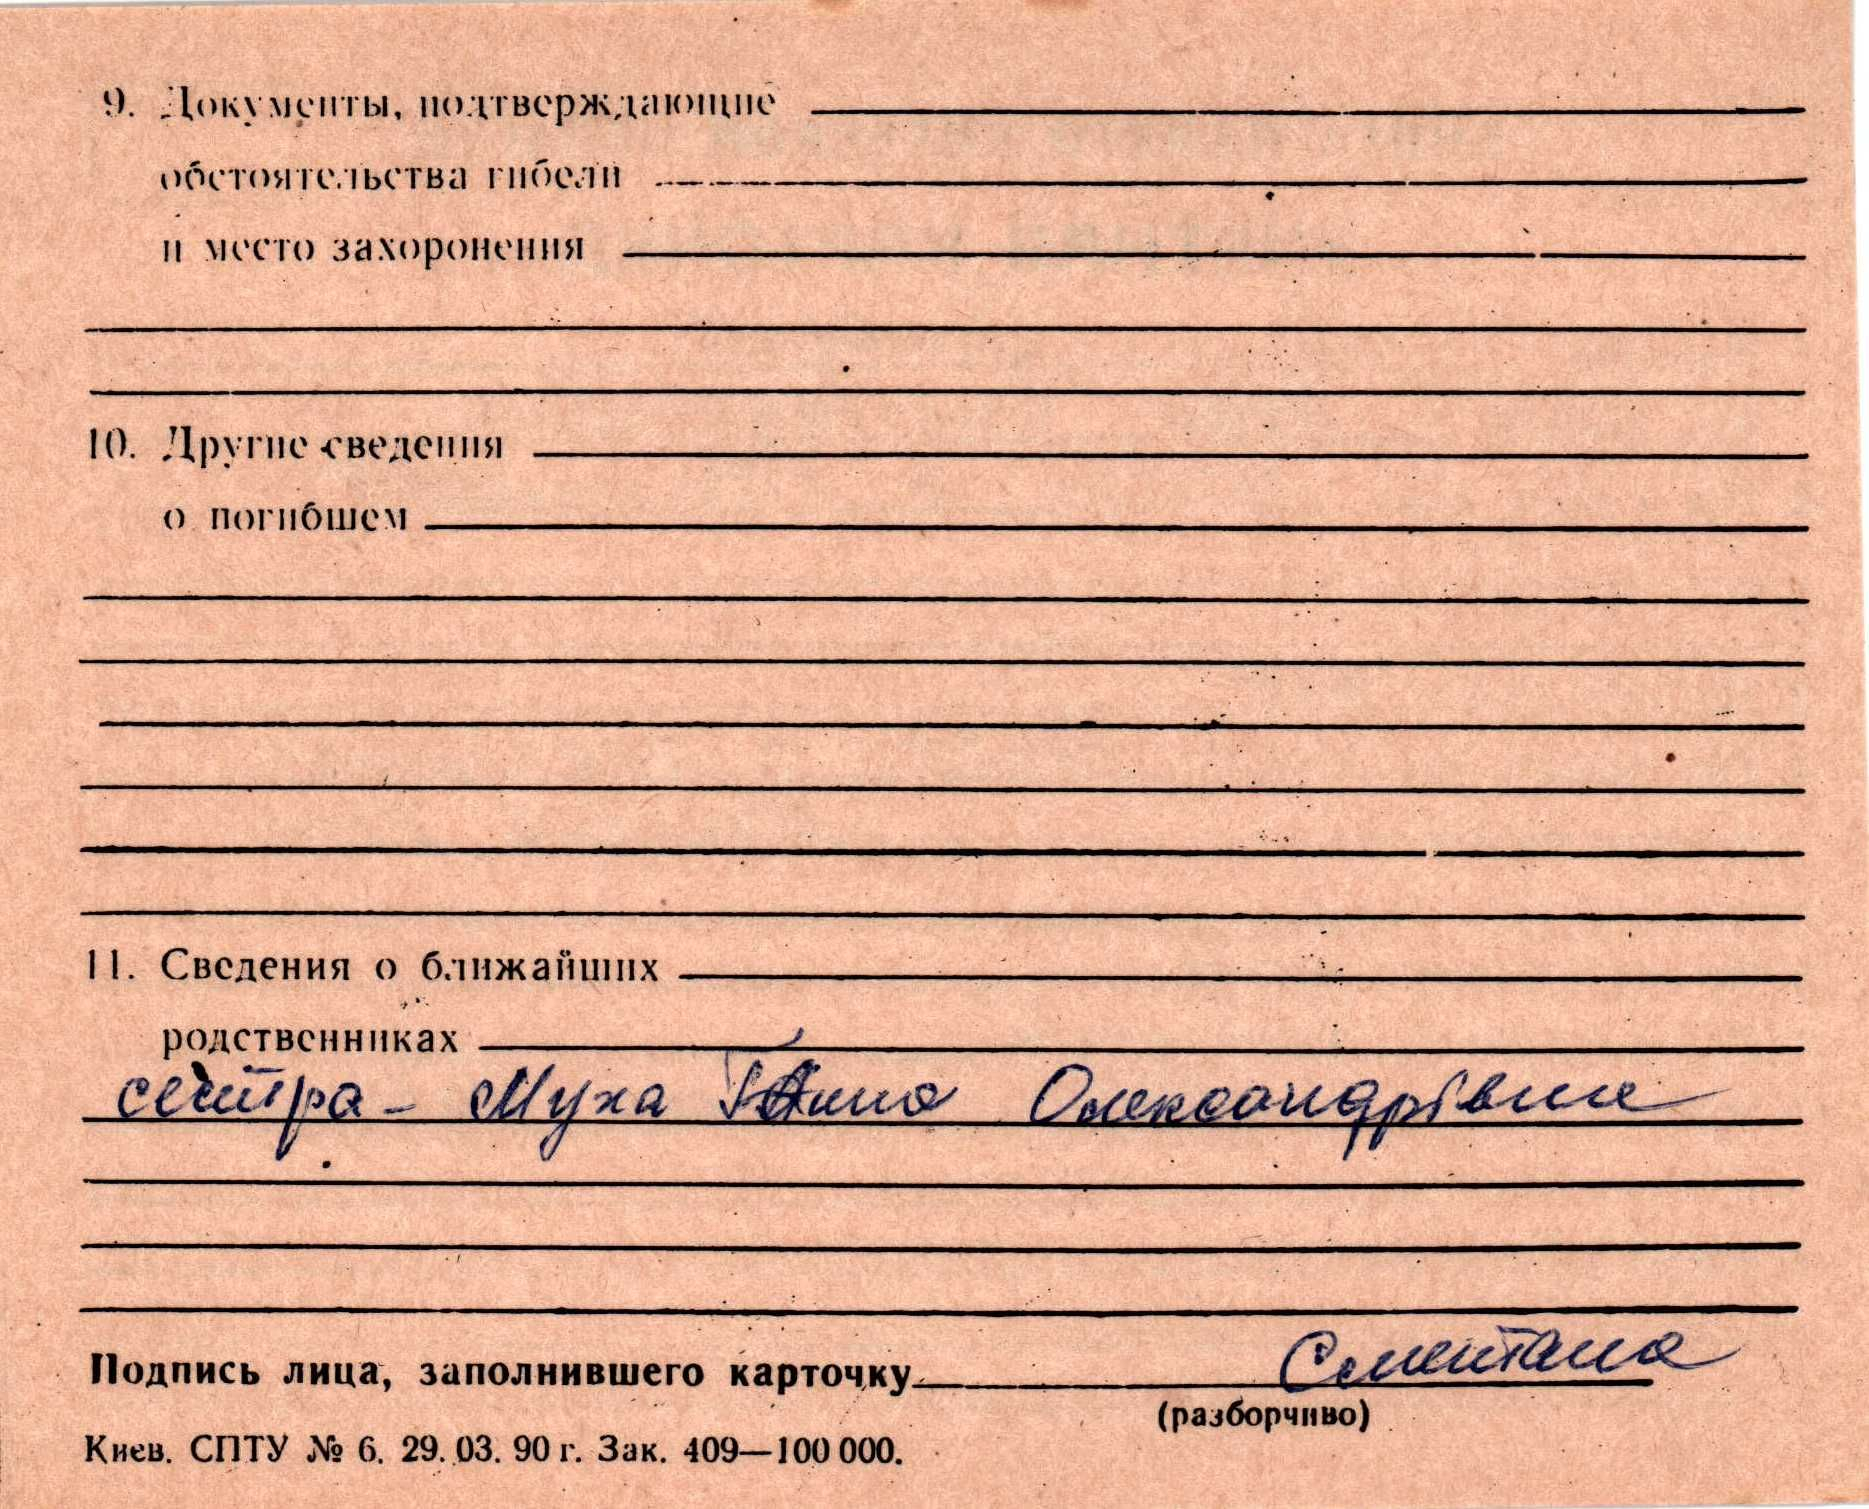 9. Документы, подтверждающие
обстоятельства гибели
и место захоронения
10. Другие сведения
о погибшем
11. Сведения о ближайших
родственниках
сестра - Муха Ганна Олександрівна
Подпись лица, заполнившего карточку Сметана
(разборчиво)
Киев. СПТУ № 6. 29. 03. 90 г. Зак. 409—100 000.